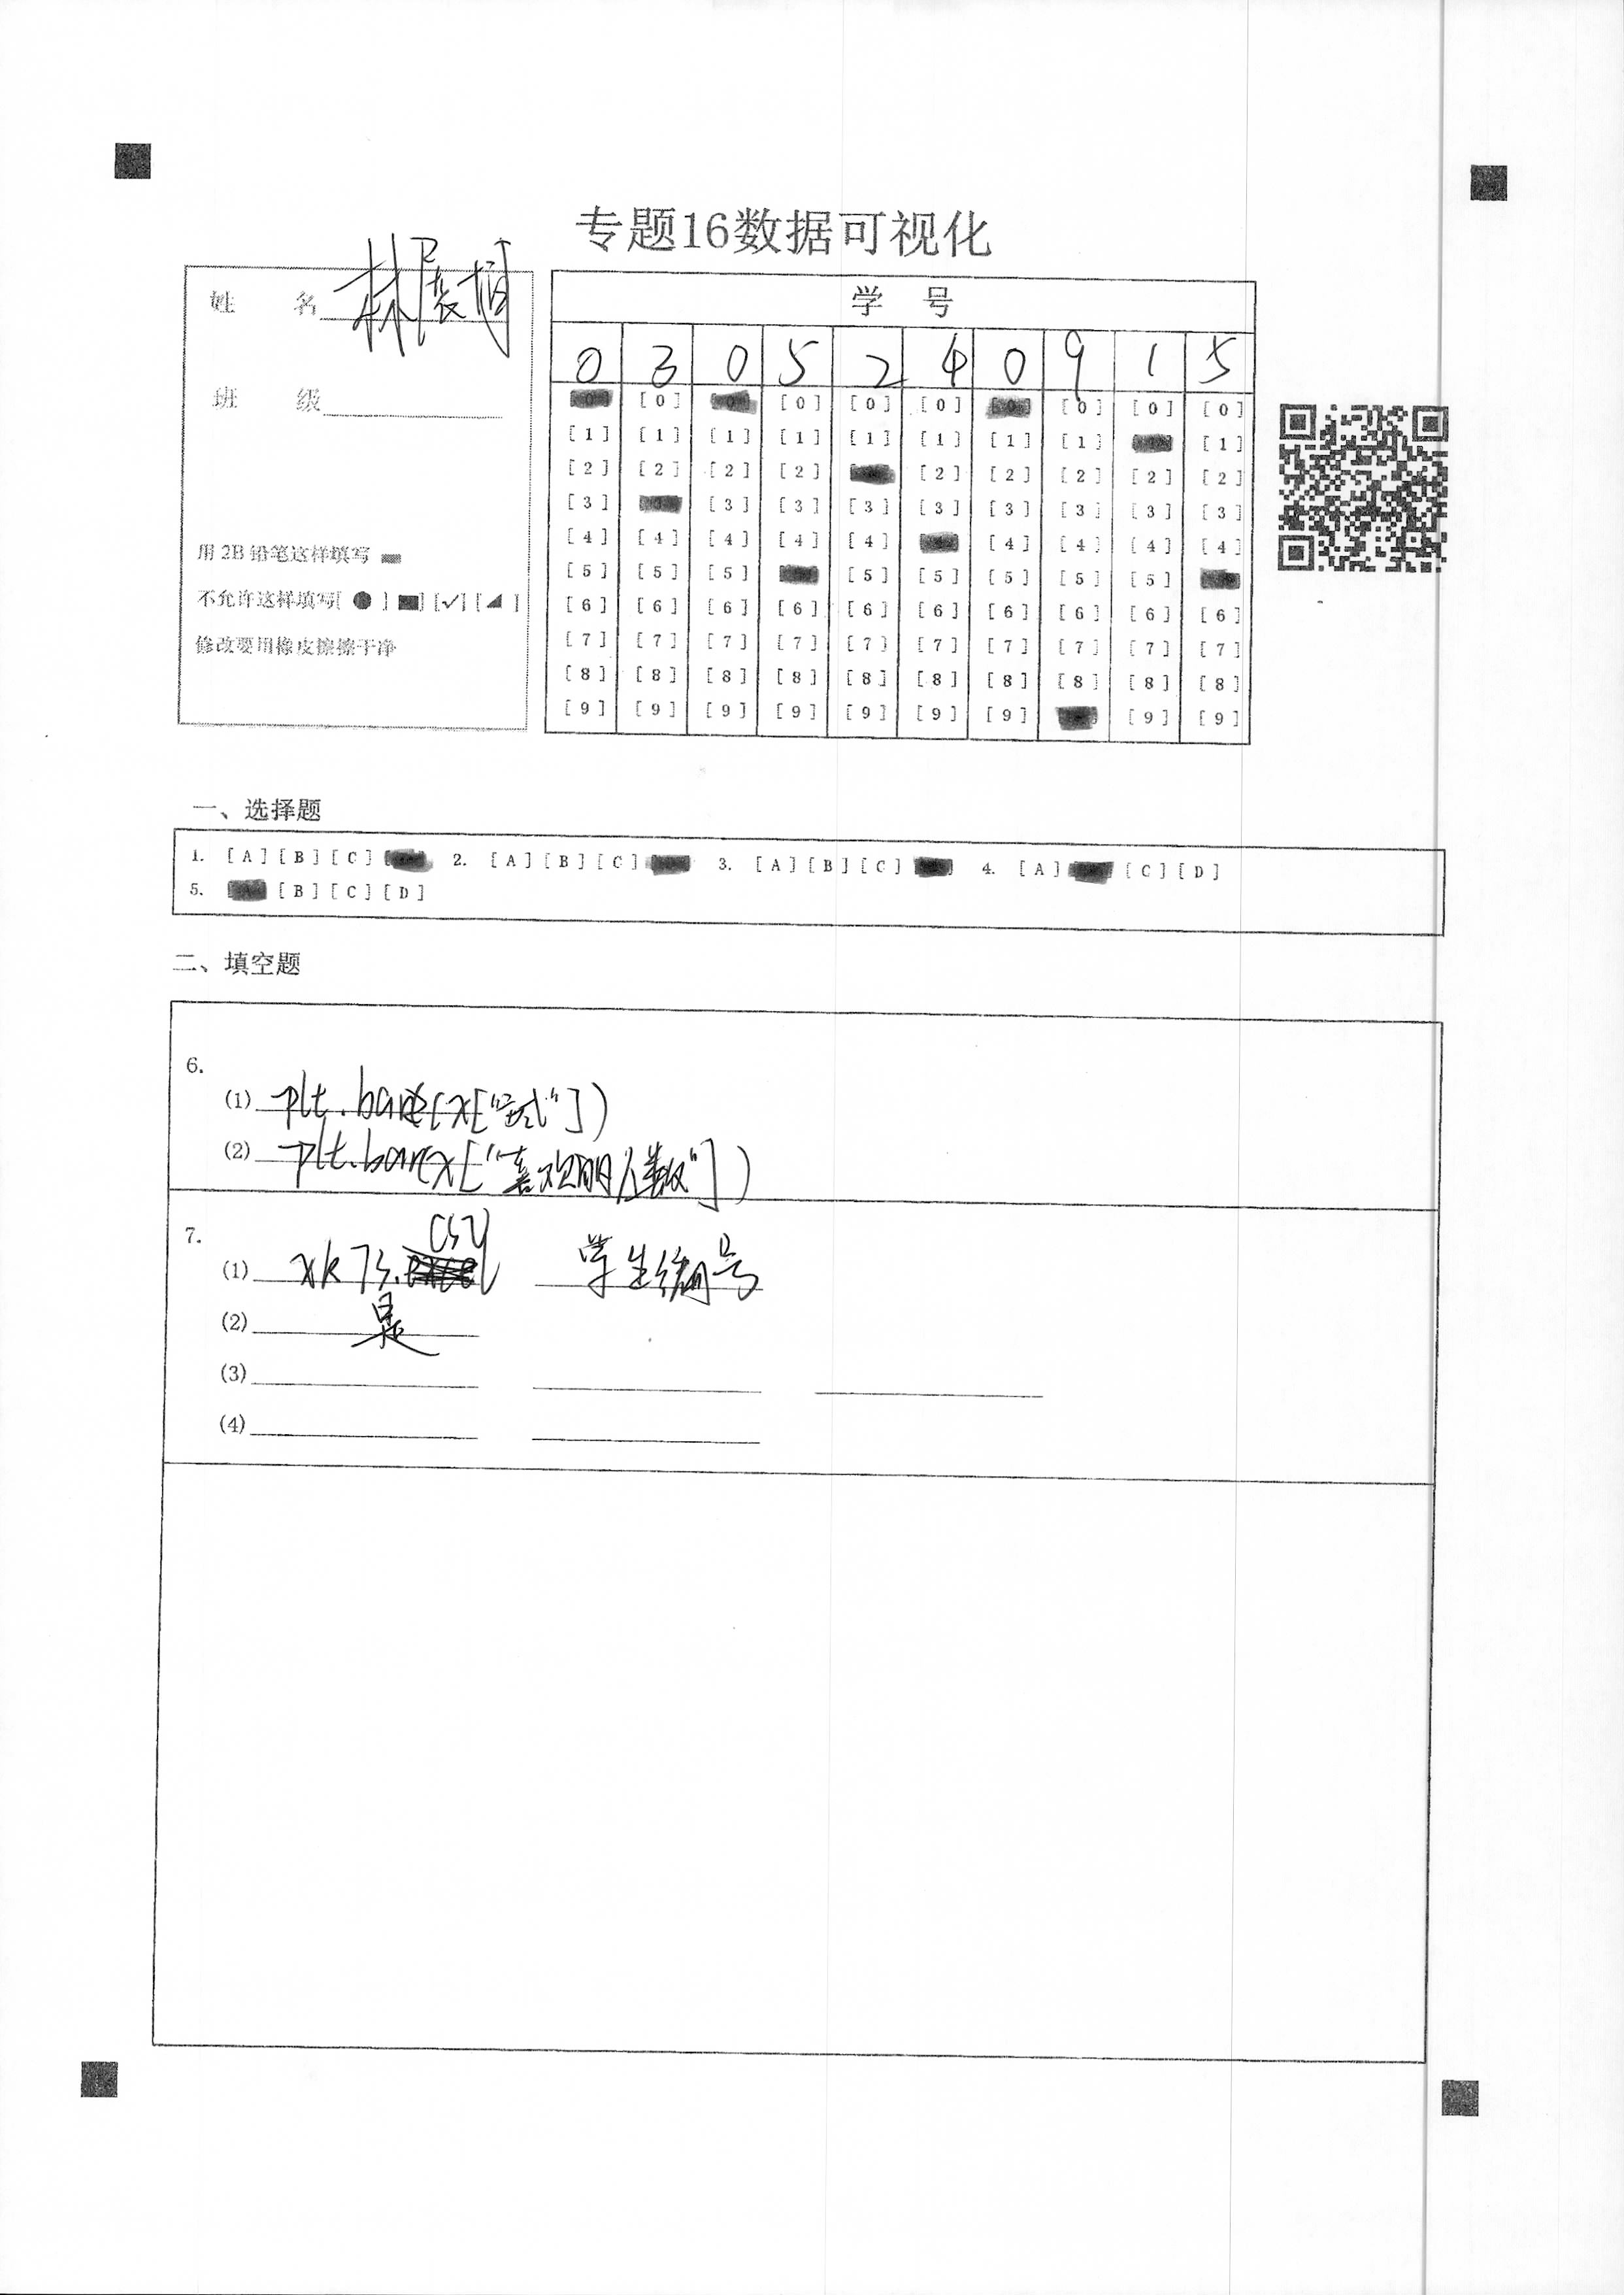 专题16数据可视化
姓 名 林展
班 级
用 2B 铅笔这样填写
不允许这样填写[ ● ] [■] [✓] [◢]
修改要用橡皮擦擦干净
学 号
0 3 0 5 2 4 0 9 1 5
[0] [0] [0] [0] [0] [0] [0]
[1] [1] [1] [1] [1] [1] [1] [1] [1]
[2] [2] [2] [2] [2] [2] [2] [2] [2]
[3] [3] [3] [3] [3] [3] [3] [3] [3]
[4] [4] [4] [4] [4] [4] [4] [4] [4]
[5] [5] [5] [5] [5] [5] [5] [5]
[6] [6] [6] [6] [6] [6] [6] [6] [6] [6]
[7] [7] [7] [7] [7] [7] [7] [7] [7] [7]
[8] [8] [8] [8] [8] [8] [8] [8] [8] [8]
[9] [9] [9] [9] [9] [9] [9] [9] [9]
一、选择题
1. [A] [B] [C] 2. [A] [B] [C] 3. [A] [B] [C] 4. [A] [C] [D]
5. [B] [C] [D]
二、填空题
6.
(1) plt.bar(x["款式"])
(2) plt.bar(x["喜欢的人数"])
7.
(1) xk73.csv 学生编号
(2) 是
(3)
(4)